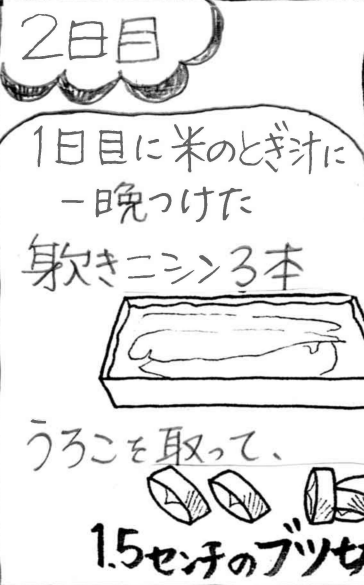 2日目
1日目に米のとぎ汁に
一晩つけた
身欠きニシン3本
うろこを取って、
1.5センチのブツ切